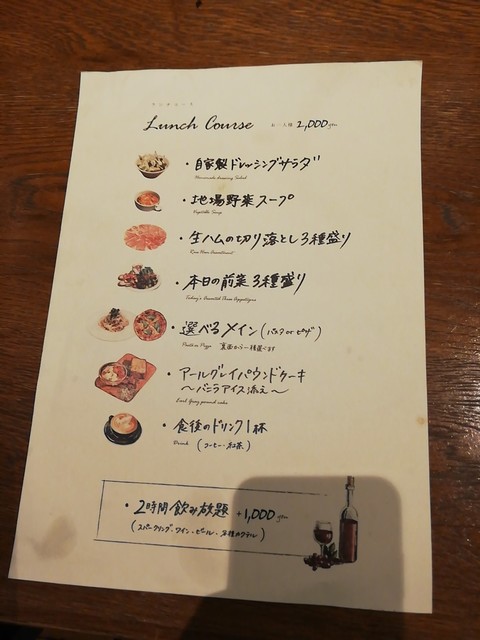 ランチコース
Lunch Course お一人様 2,000yen
・自家製ドレッシングサラダ
Homemade dressing Salad
・地場野菜スープ
Vegetable Soup
・生ハムの切り落とし3種盛り
Raw Ham Assortment
・本日の前菜3種盛り
Today's Assorted Three Appetizers
・選べるメイン(パスタorピザ)
Pasta or Pizza 裏面から一種選べます
・アールグレイパウンドケーキ
〜バニラアイス添え〜
Earl Grey pound cake
・食後のドリンク1杯
Drink (コーヒー・紅茶)
・2時間飲み放題 +1,000yen
(スパークリング・ワイン・ビール・各種カクテル)